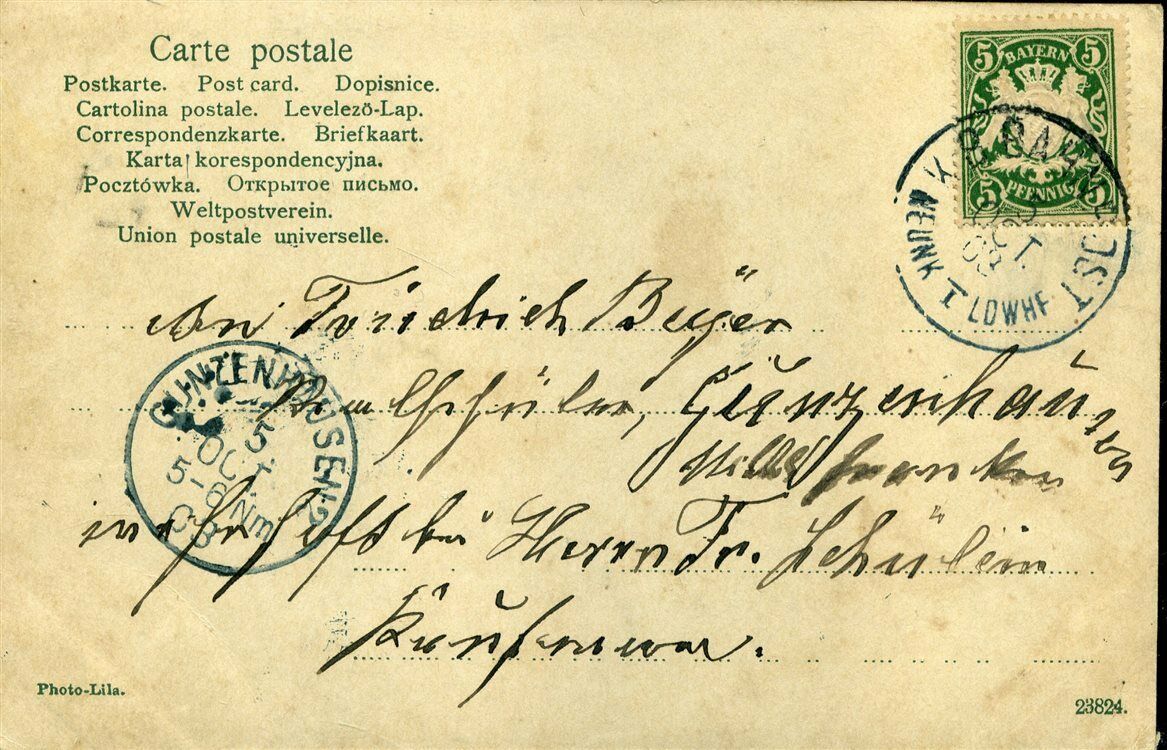 Carte postale
Postkarte. Post card. Dopisnice.
Cartolina postale. Levelező-Lap.
Correspondenzkarte. Briefkaart.
Karta korespondencyjna.
Pocztówka. Открытое письмо.
Weltpostverein.
Union postale universelle.
5 BAYERN 5
5 PFENNIG 5
K. B. BAHNPOST
OCT
03
NEUNK I LDWHF
An Friedrich Beyer
Realschüler, Gunzenhausen
Mittelfranken
wohnhaft bei Herrn Fr. Schülein
Kaufmann.
GUNZENHAUSEN 2
5
OCT.
5-6 Nm
03
Photo-Lila.
23824.